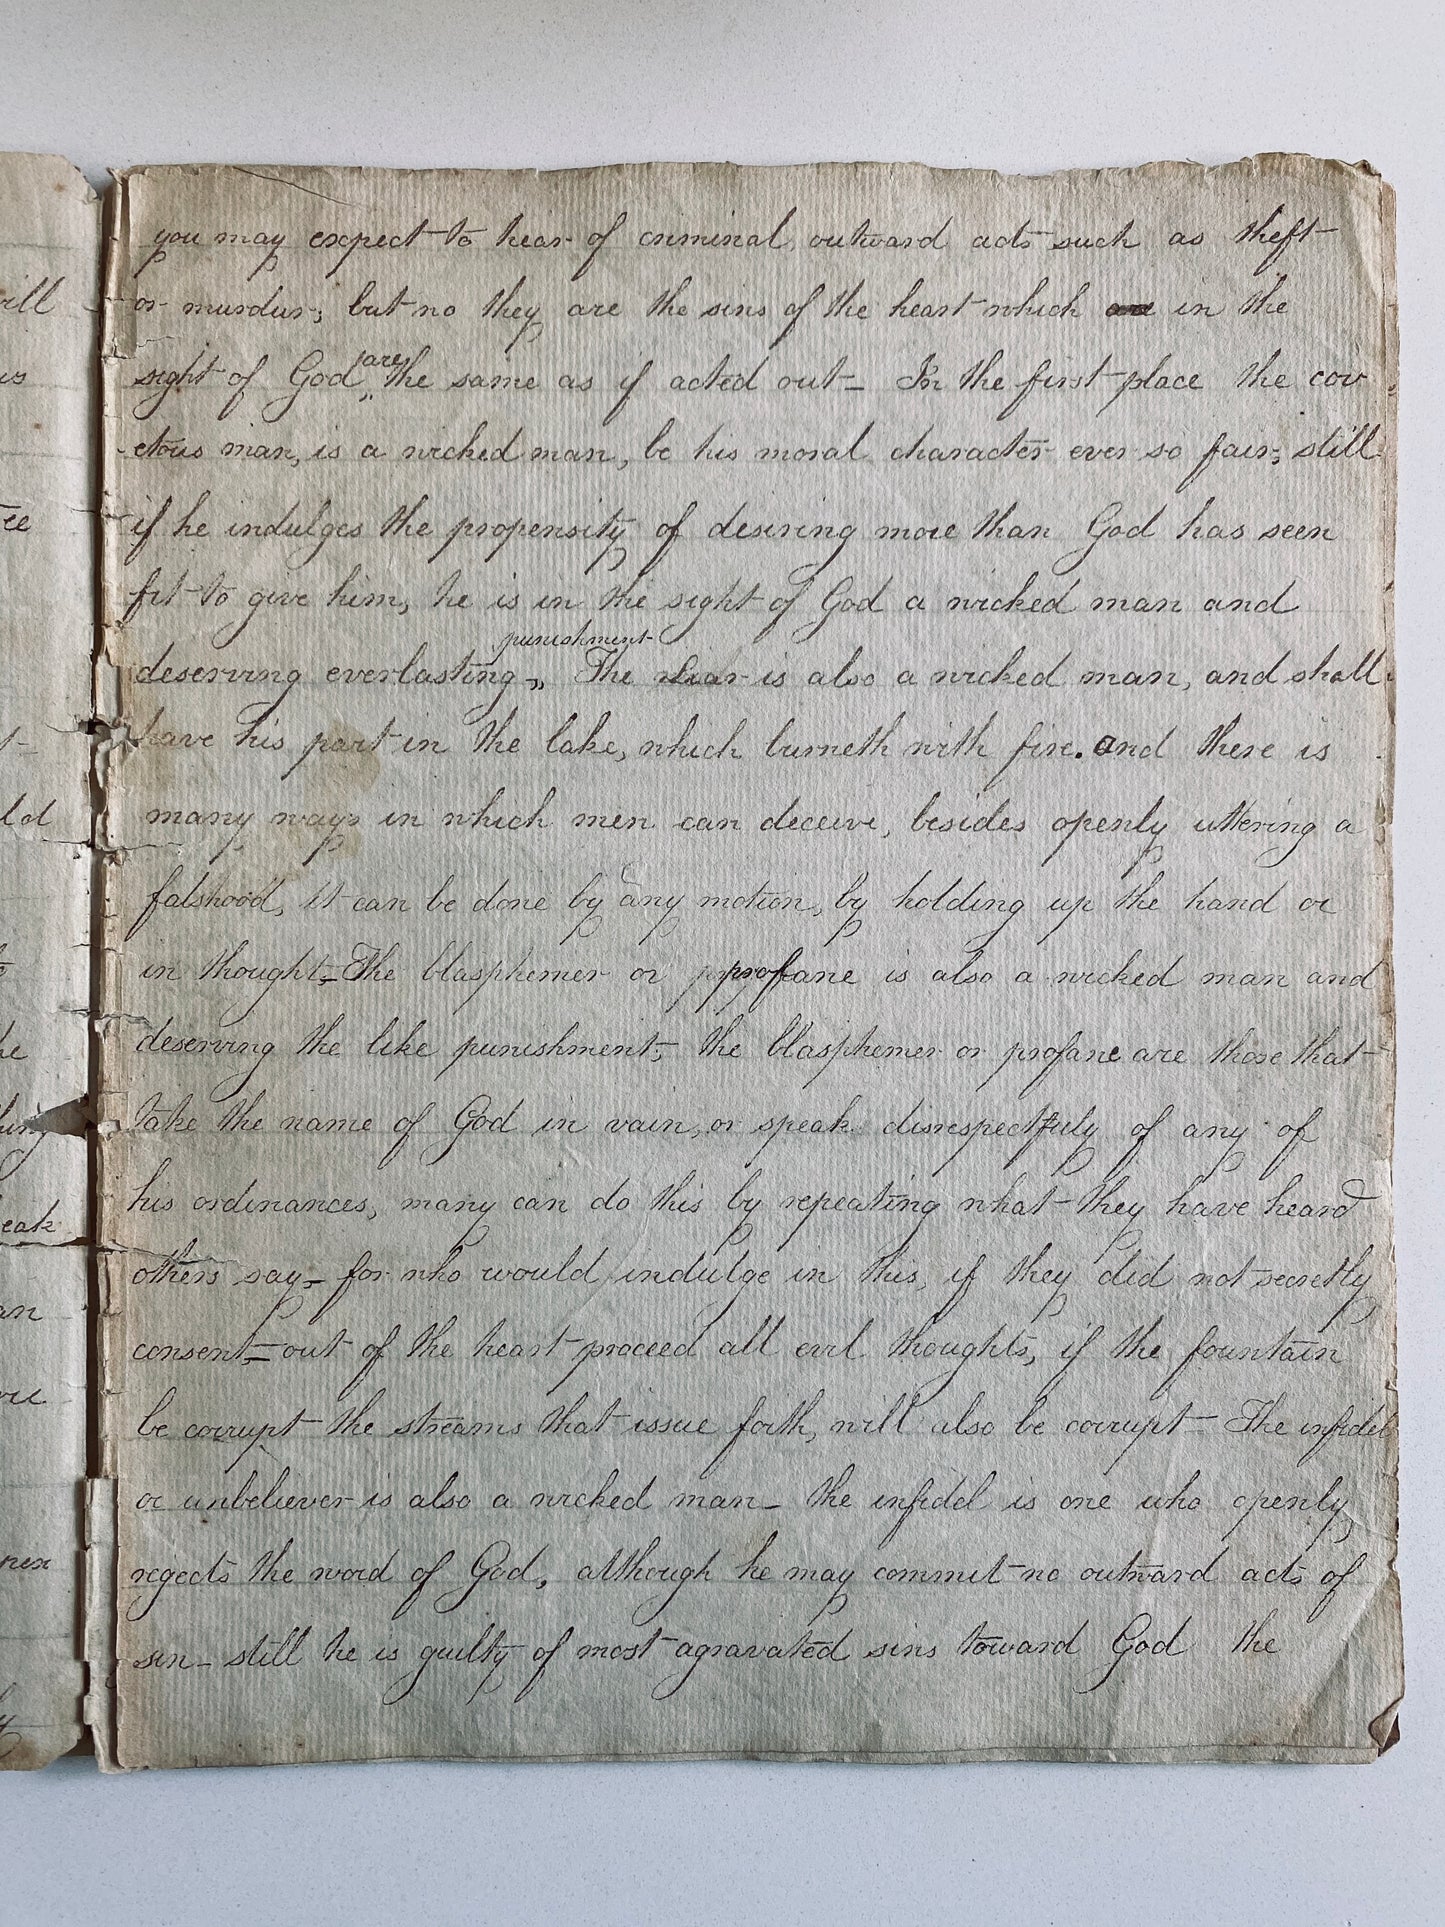 you may expect to hear of criminal, outward acts such as theft
or murdur; but no they are the sins of the heart which are in the
sight of God, are the same as if acted out_ In the first place the cov
-etous man, is a wicked man, be his moral character ever so fair; still
if he indulges the propensity of desiring more than God has seen
fit to give him, he is in the sight of God a wicked man and
punishment
deserving everlasting_,, The Liar is also a wicked man, and shall
have his part in the lake, which burneth with fire. and there is
many ways in which men can deceive, besides openly uttering a
falshood, it can be done by any motion, by holding up the hand or
in thought_ The blasphemer or profane is also a wicked man and
deserving the like punishment, the blasphemer or profane are those that
take the name of God in vain, or speak disrespectfuly of any of
his ordinances, many can do this by repeating what they have heard
others say_ for who would indulge in this, if they did not secretly
consent_ out of the heart proceed all evil thoughts, if the fountain
be corrupt the streams that issue forth, will also be corrupt_ The infidel
or unbeliever is also a wicked man_ the infidel is one who openly
regects the word of God, although he may commit no outward acts of
sin_ still he is guilty of most agravated sins toward God the